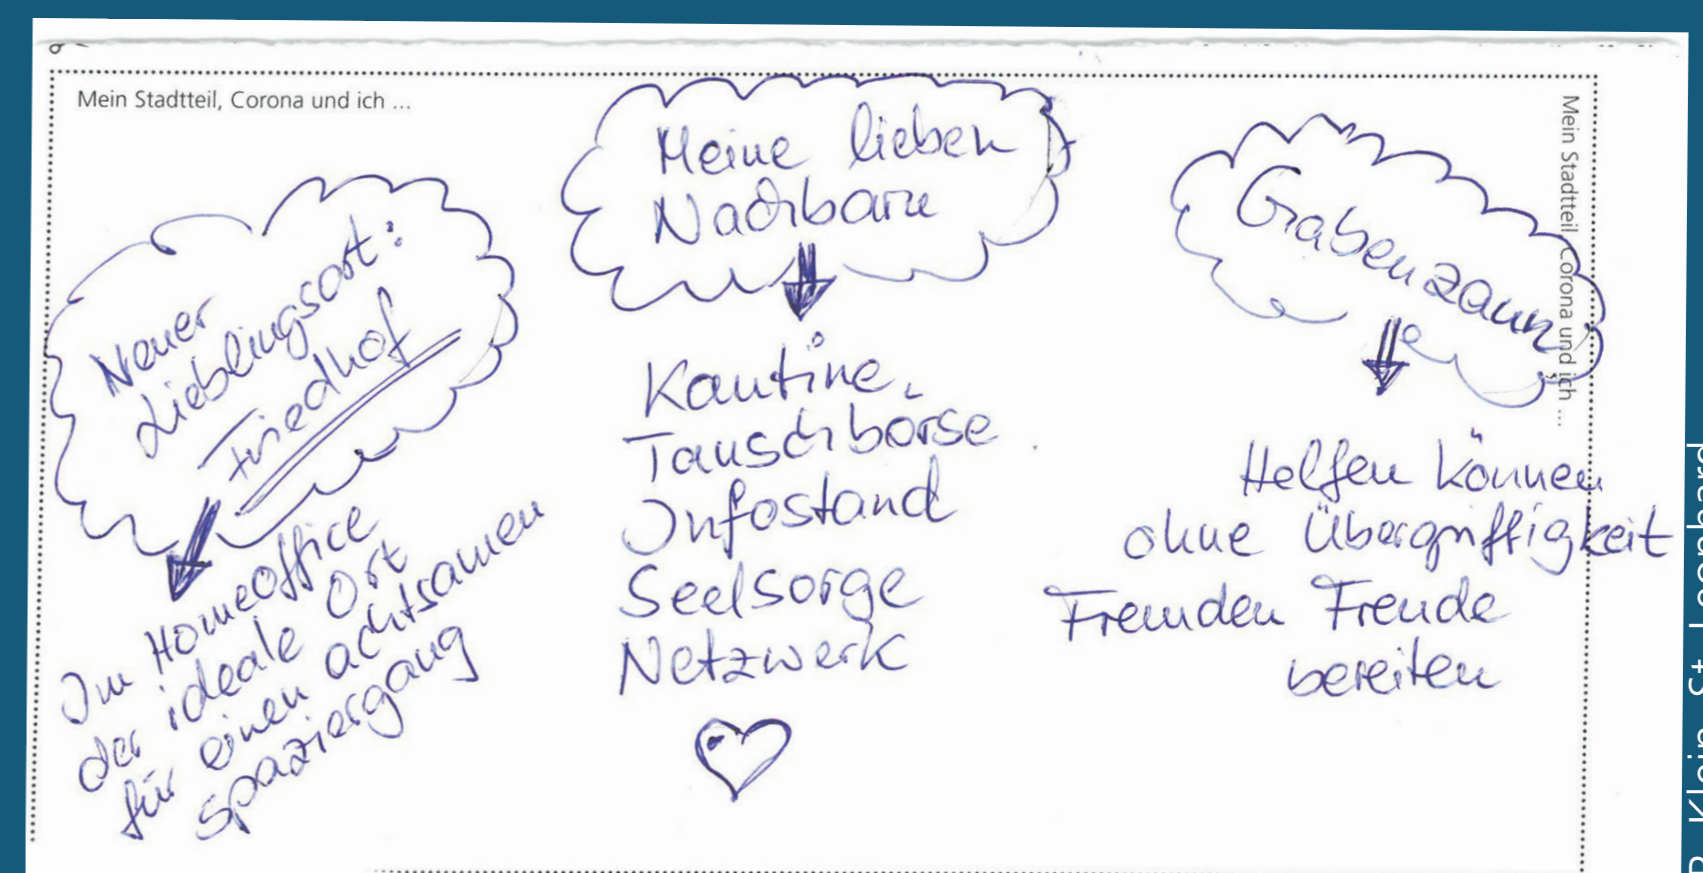 Mein Stadtteil, Corona und ich ...
Neuer
Lieblingsort:
Friedhof
Im Homeoffice
der ideale Ort
für einen achtsamen
spaziergang
Meine lieben
Nachbarn
Kantine,
Tauschbörse
Infostand
Seelsorge
Netzwerk
Gabenzaun
Helfen können
ohne Übergriffigkeit
Fremden Freude
bereiten
Mein Stadtteil, Corona und ich ...
Klein, St. Leonhard